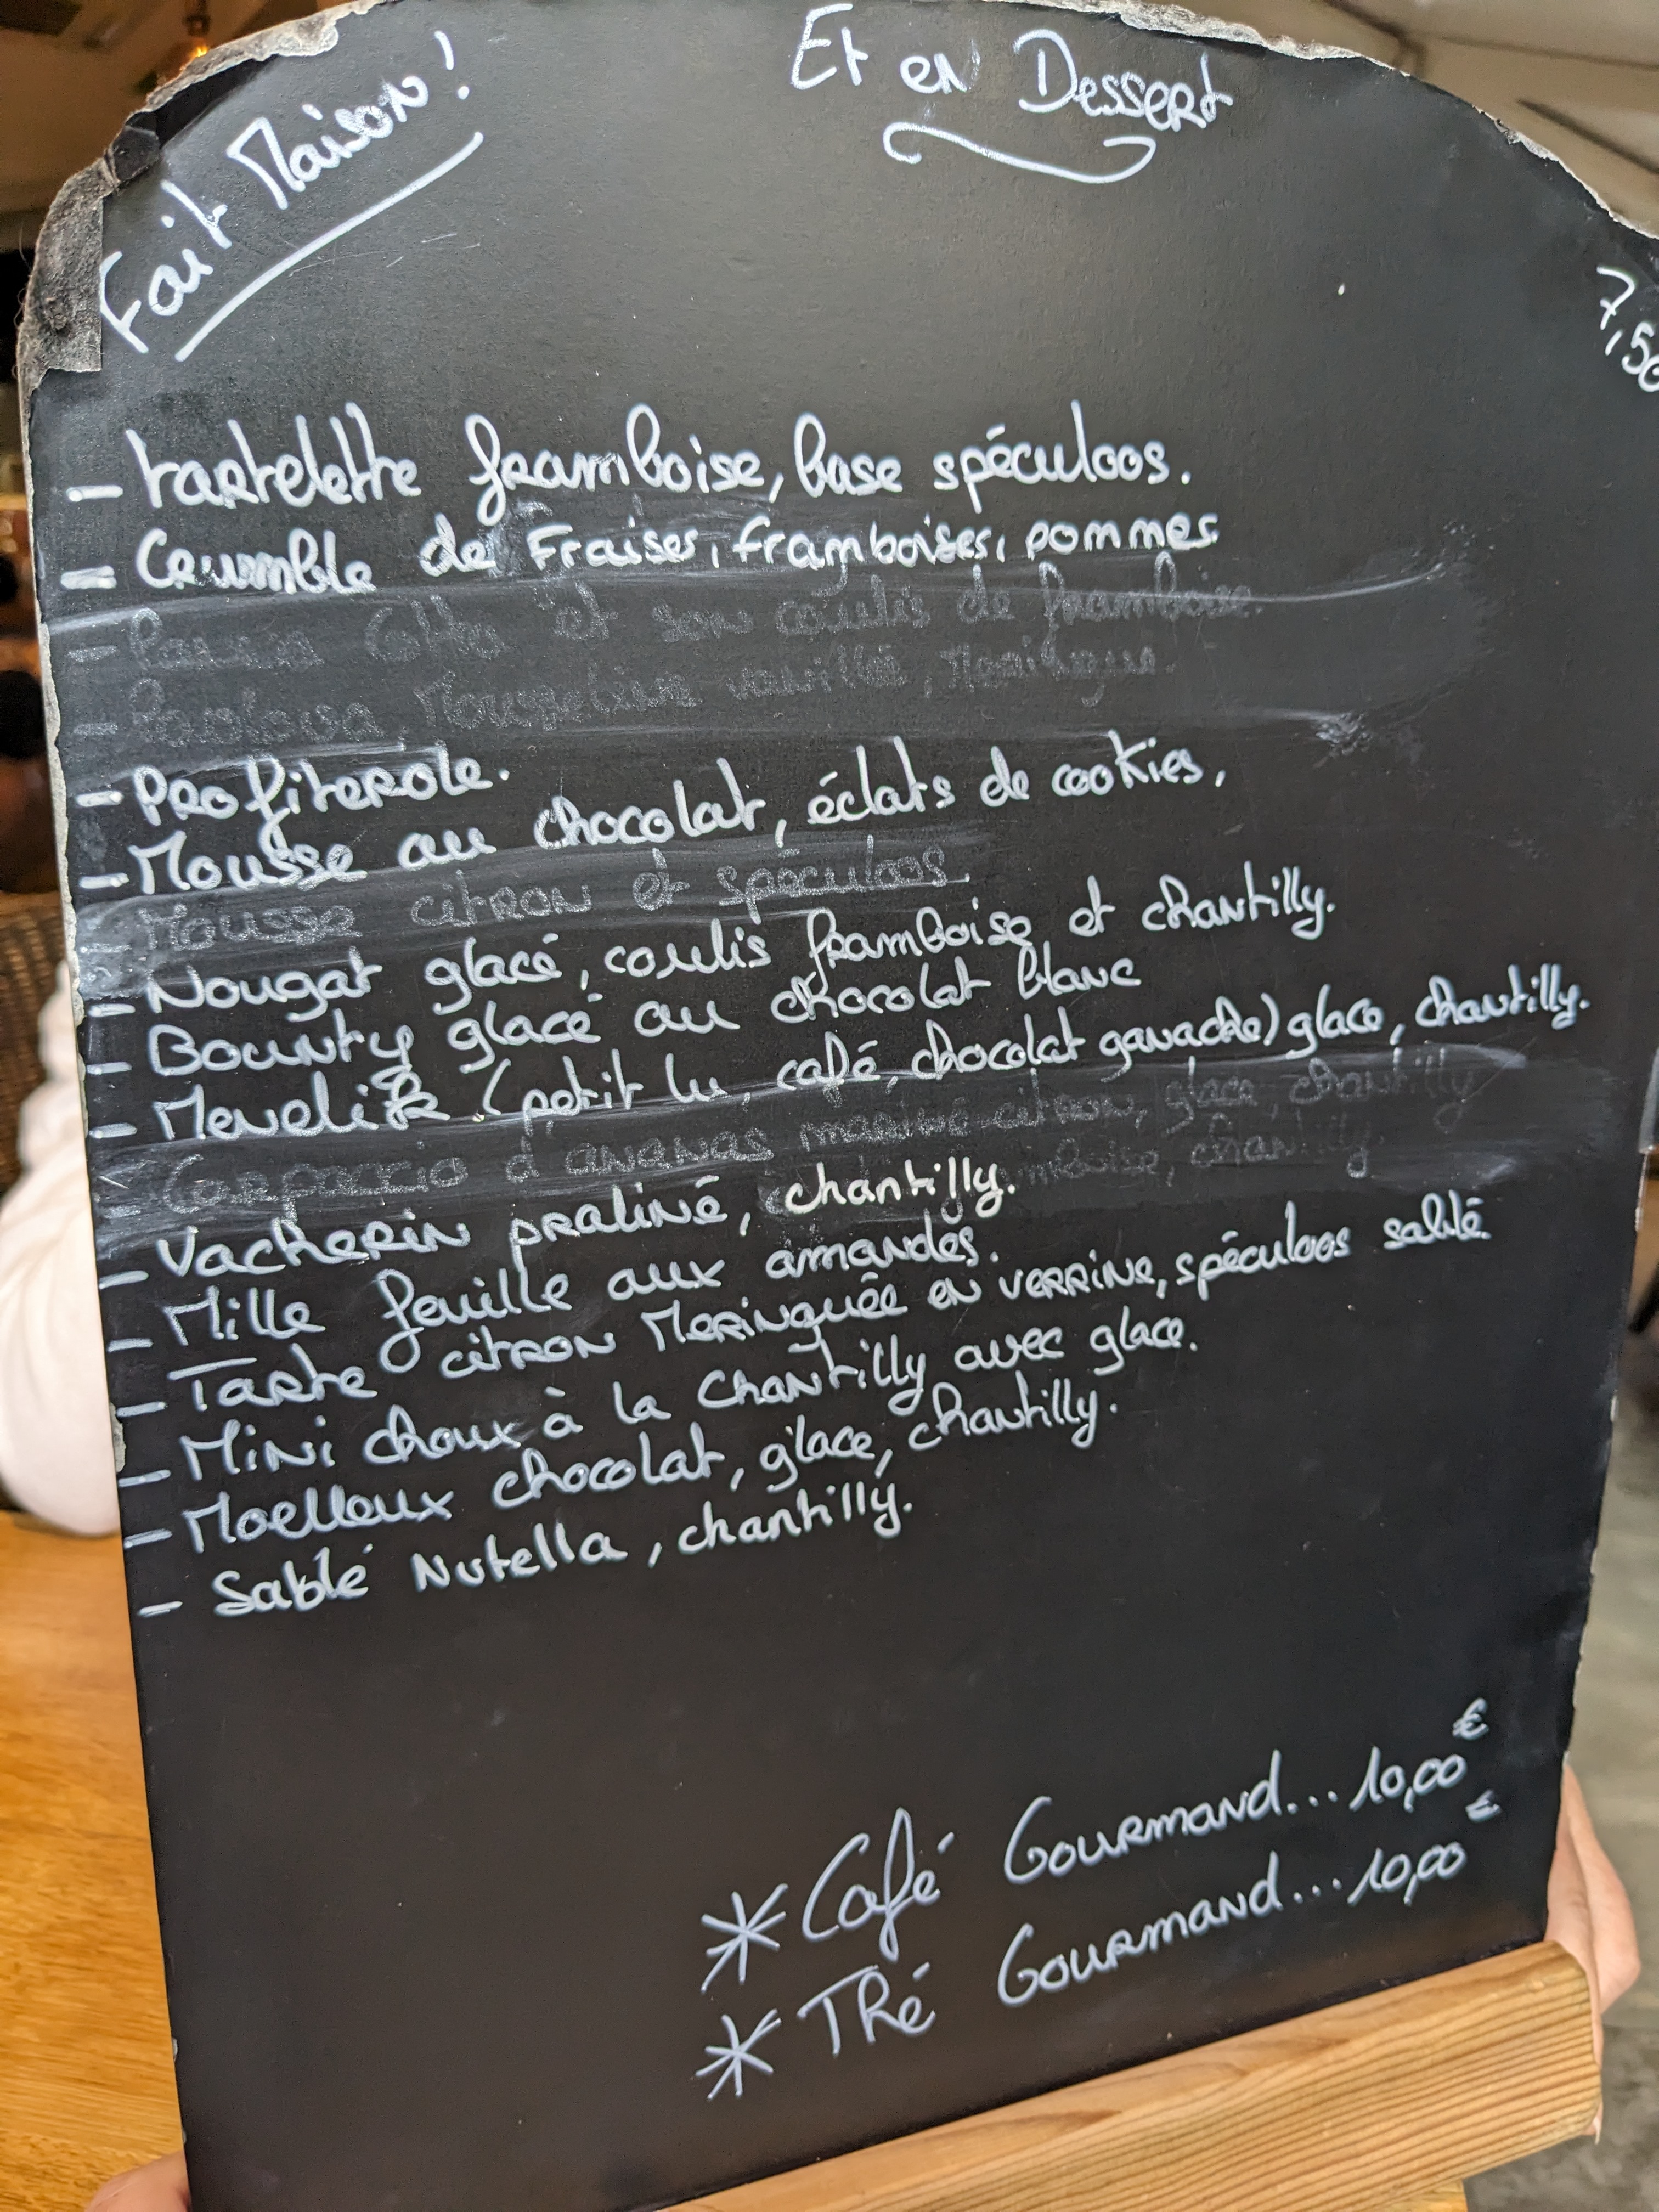 Fait Maison!
Et en Dessert
7,50
- tartelette framboise, base spéculoos.
- Crumble de Fraises, framboises, pommes.
- et son coulis de framboise.
-
- Profiterole.
- Mousse au chocolat, éclats de cookies,
- Mousse citron et spéculoos.
- Nougat glacé, coulis framboise et chantilly.
- Bounty glacé au chocolat blanc
- (petit lu, café, chocolat ganache) glace, chantilly.
- Carpaccio d'ananas mariné citron, glace, chantilly
- Vacherin praliné, chantilly.
- Mille feuille aux amandes.
- Tarte citron Meringuée en verrine, spéculoos sablé.
- Mini choux à la Chantilly avec glace.
- Moelleux chocolat, glace, chantilly.
- Sablé Nutella, chantilly.
* Café Gourmand... 10,00€
* Thé Gourmand... 10,00€